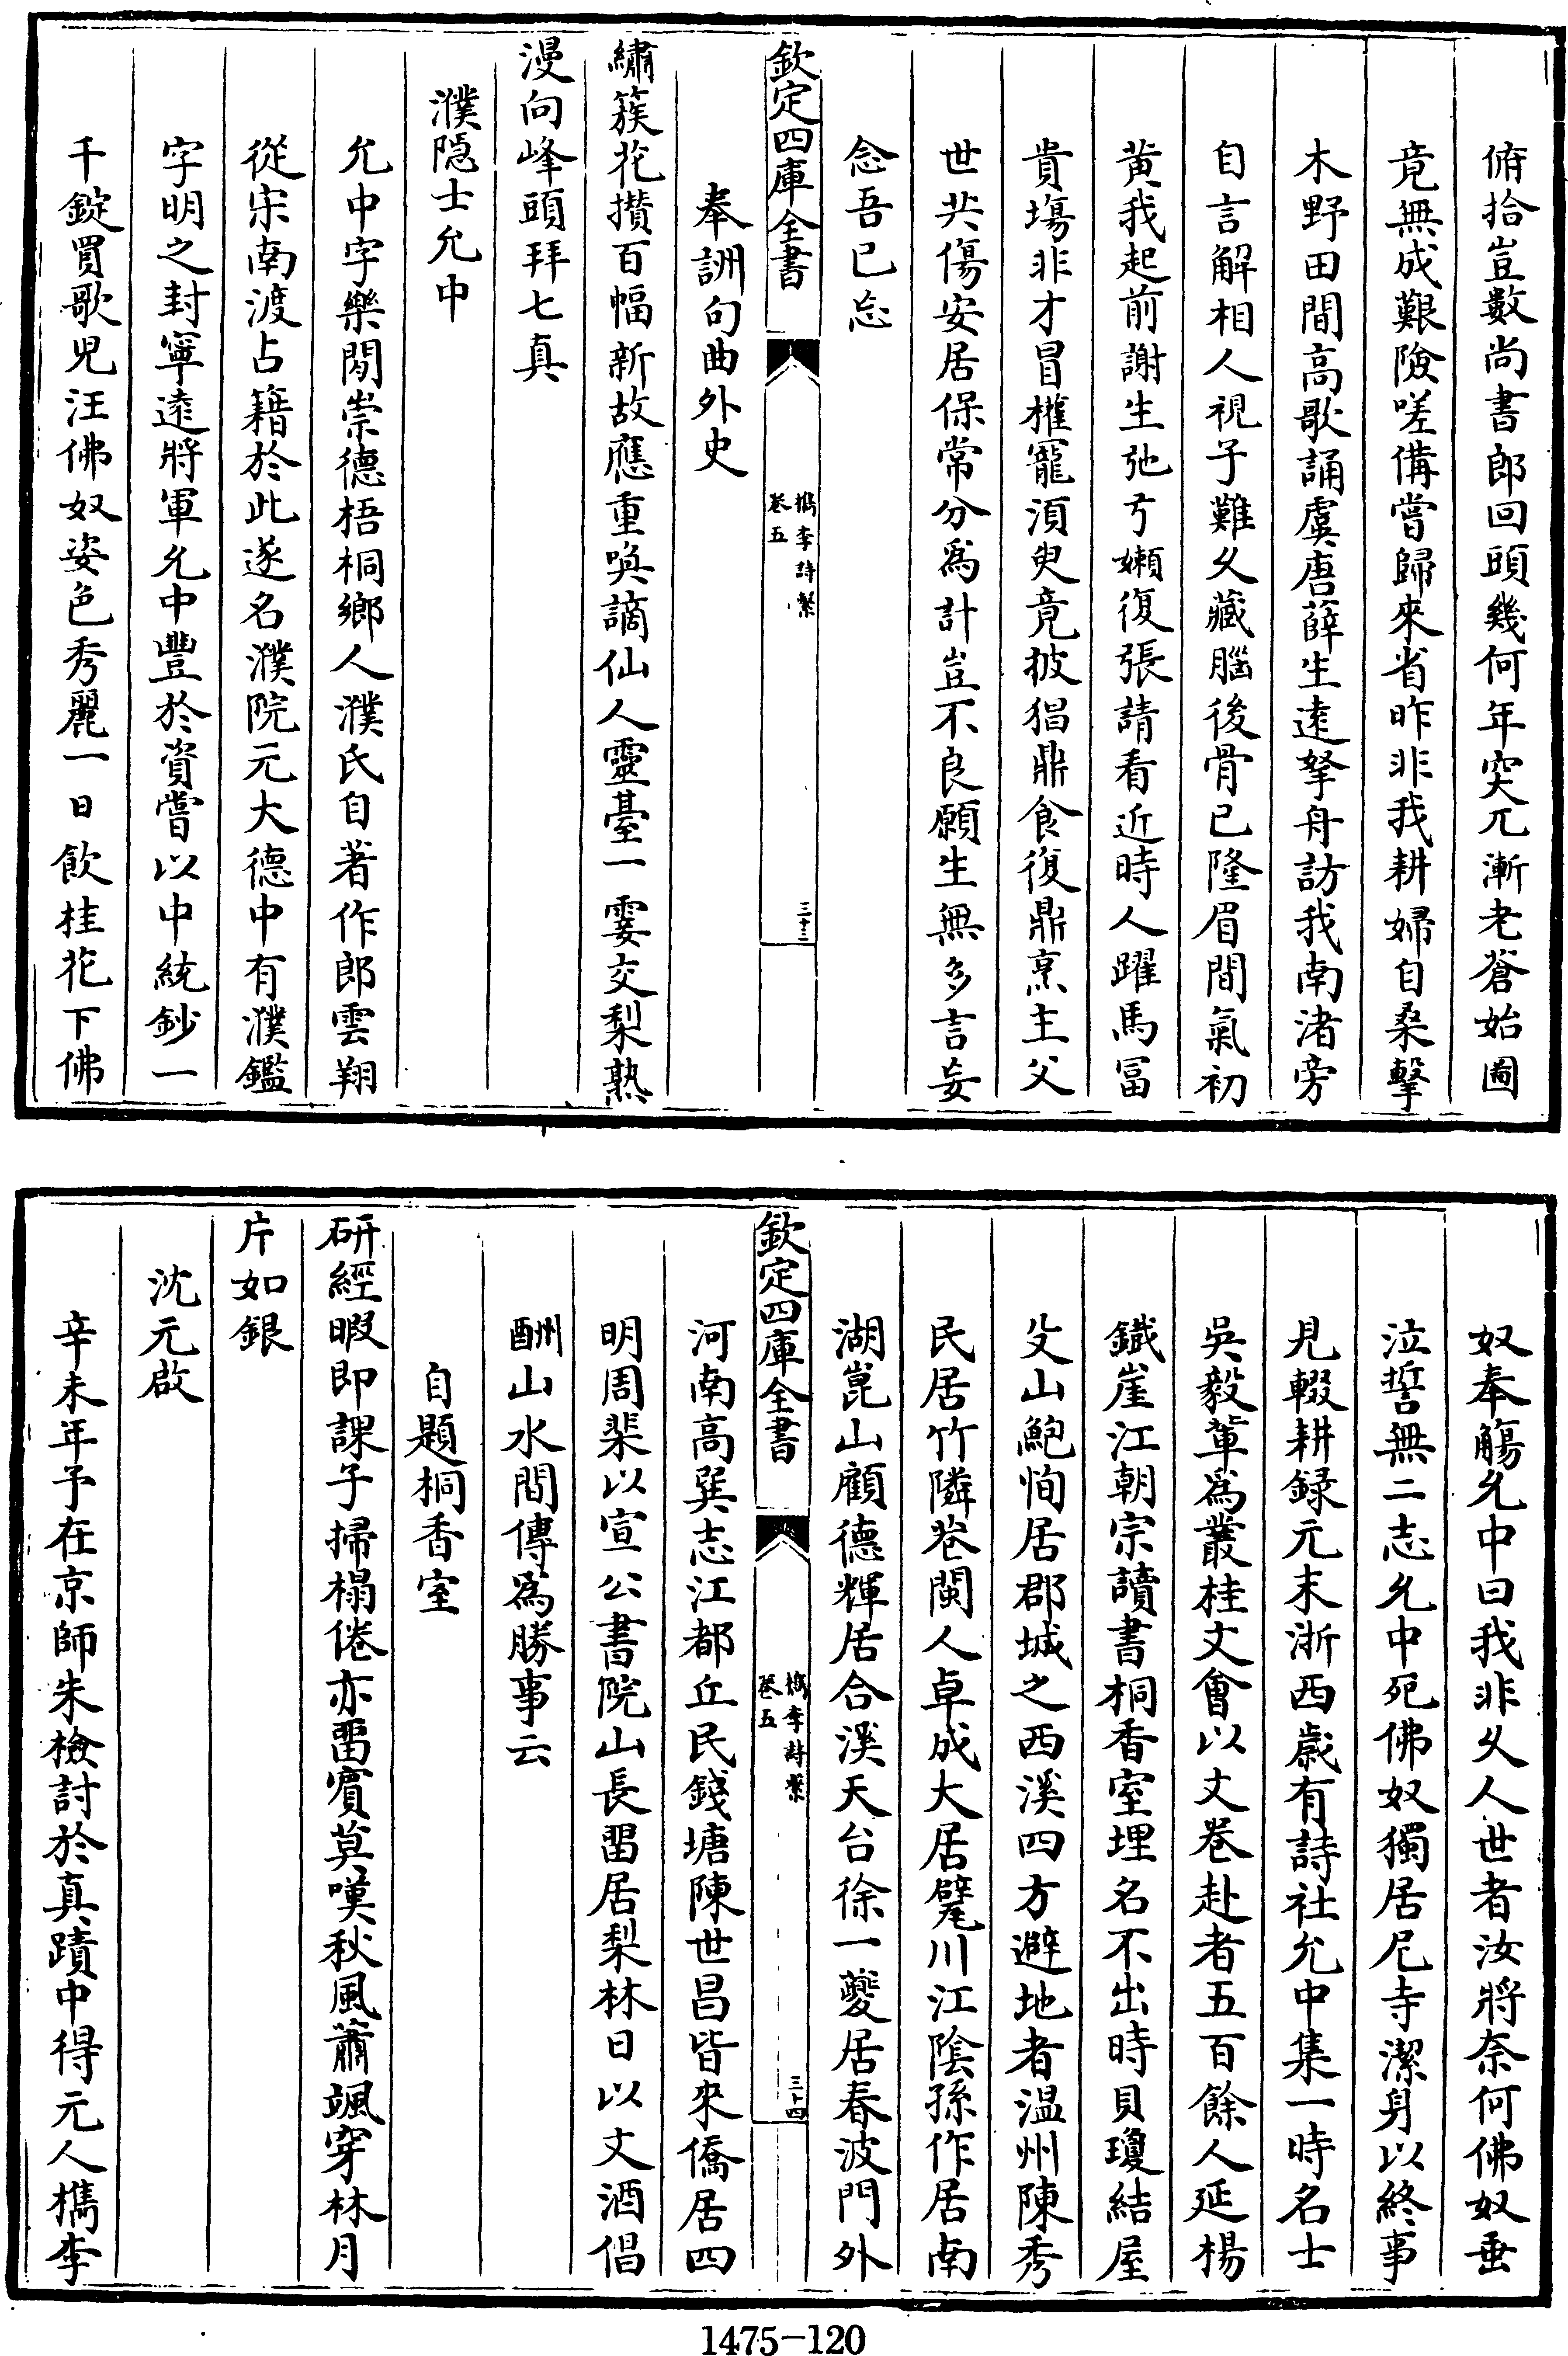 俯拾豈數尚書郎回頭幾何年突兀漸老蒼始圖
竟無成艱險嗟備嘗歸來省昨非我耕婦自桑擊
木野田間高歌誦虞唐薛生遠拏舟訪我南渚旁
自言解相人視子難久藏腦後骨已隆眉間氣初
黄我起前謝生弛亐嬾復張請看近時人躍馬富
貴塲非才冒權寵湏臾竟披猖鼎食復鼎烹主父
世共傷安居保常分為計豈不良願生無多言妄
念吾已忘
欽定四庫全書
檇李詩繫
卷五
三十三
奉詶句曲外史
繡簇花攅百幅新故應重喚謫仙人靈臺一霎交梨熟
漫向峰頭拜七真
濮隠士允中
允中字樂閒崇德梧桐鄉人濮氏自著作郎雲翔
從宋南渡占籍於此遂名濮院元大德中有濮鑑
字明之封寧遠將軍允中豐於資嘗以中統鈔一
千錠買歌兒汪佛奴姿色秀麗一日飲桂花下佛
奴奉觴允中曰我非久人世者汝將奈何佛奴垂
泣誓無二志允中死佛奴獨居尼寺潔身以終事
見輟耕録元末浙西歲有詩社允中集一時名士
吳毅軰為叢桂文會以文卷赴者五百餘人延楊
鐡崖江朝宗讀書桐香室埋名不出時貝瓊結屋
殳山鮑恂居郡城之西溪四方避地者温州陳秀
民居竹隣巷閩人卓成大居甓川江隂孫作居南
湖崑山顧德輝居合溪天台徐一夔居春波門外
欽定四庫全書
檇李詩繫
卷五
三十四
河南高巽志江都丘民錢塘陳世昌皆來僑居四
明周棐以宣公書院山長畱居梨林日以文酒倡
酬山水間傳為勝事云
自題桐香室
研經暇即課子掃榻倦亦畱賔莫嘆秋風蕭颯穿林月
片如銀
沈元啟
辛未年予在京師朱檢討於真蹟中得元人檇李
1475-120